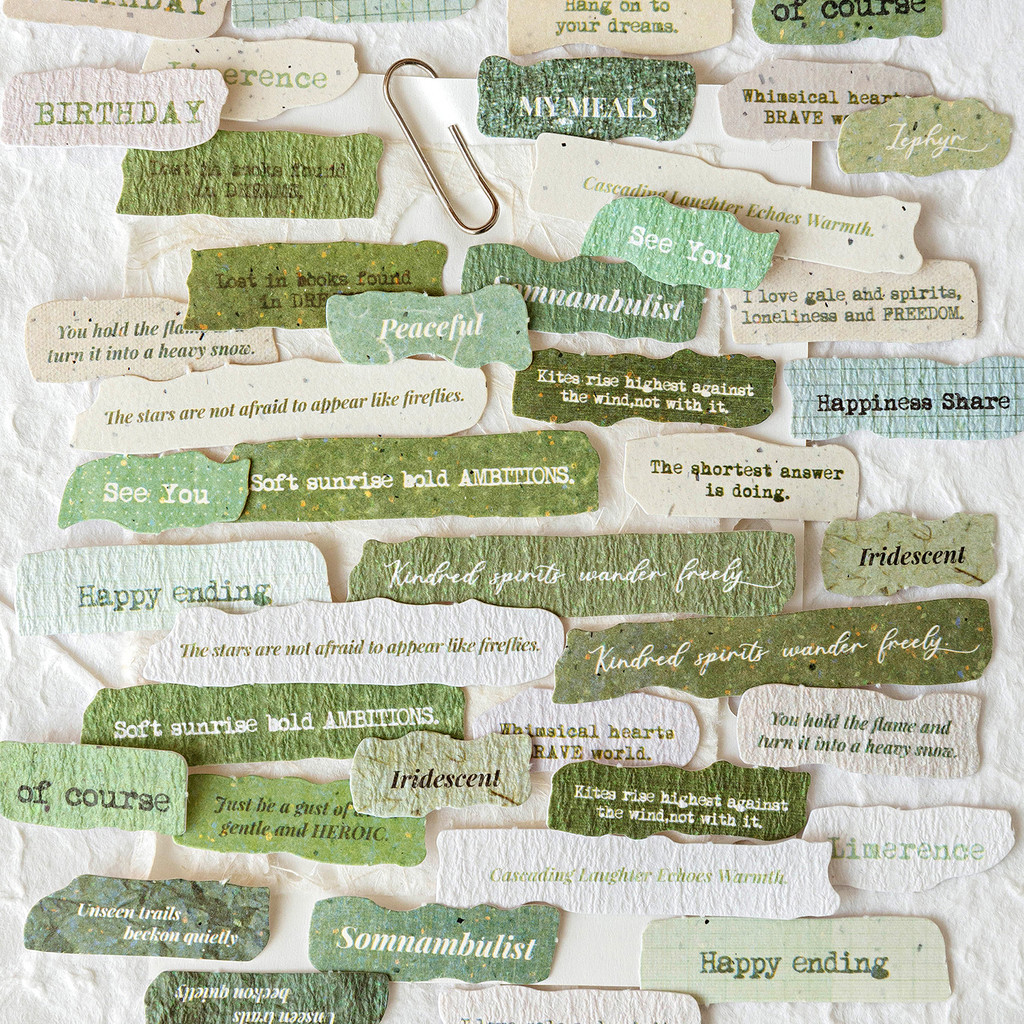 BIRTHDAY
Hang on to
your dreams.
of course
Limerence
BIRTHDAY
MY MEALS
Whimsical hearts
BRAVE
Zephyr
Lost in books found
in DREAMS.
Cascading Laughter Echoes Warmth.
See You
Lost in books found
in
Somnambulist
I love gale and spirits,
loneliness and FREEDOM.
You hold the
turn it into a heavy snow.
Peaceful
Kites rise highest against
the wind,not with it.
Happiness Share
The stars are not afraid to appear like fireflies.
Soft sunrise hold AMBITIONS.
See You
The shortest answer
is doing.
Iridescent
Happy ending
Kindred spirits wander freely
The stars are not afraid to appear like fireflies.
Kindred spirits wander freely
Soft sunrise hold AMBITIONS.
Whimsical hearts
BRAVE world.
You hold the flame and
turn it into a heavy snow.
of course
Iridescent
Just be a gust of
gentle and HEROIC.
Kites rise highest against
the wind,not with it.
Limerence
Cascading Laughter Echoes Warmth.
Unseen trails
beckon quietly
Somnambulist
Happy ending
Unseen trails
beckon quietly